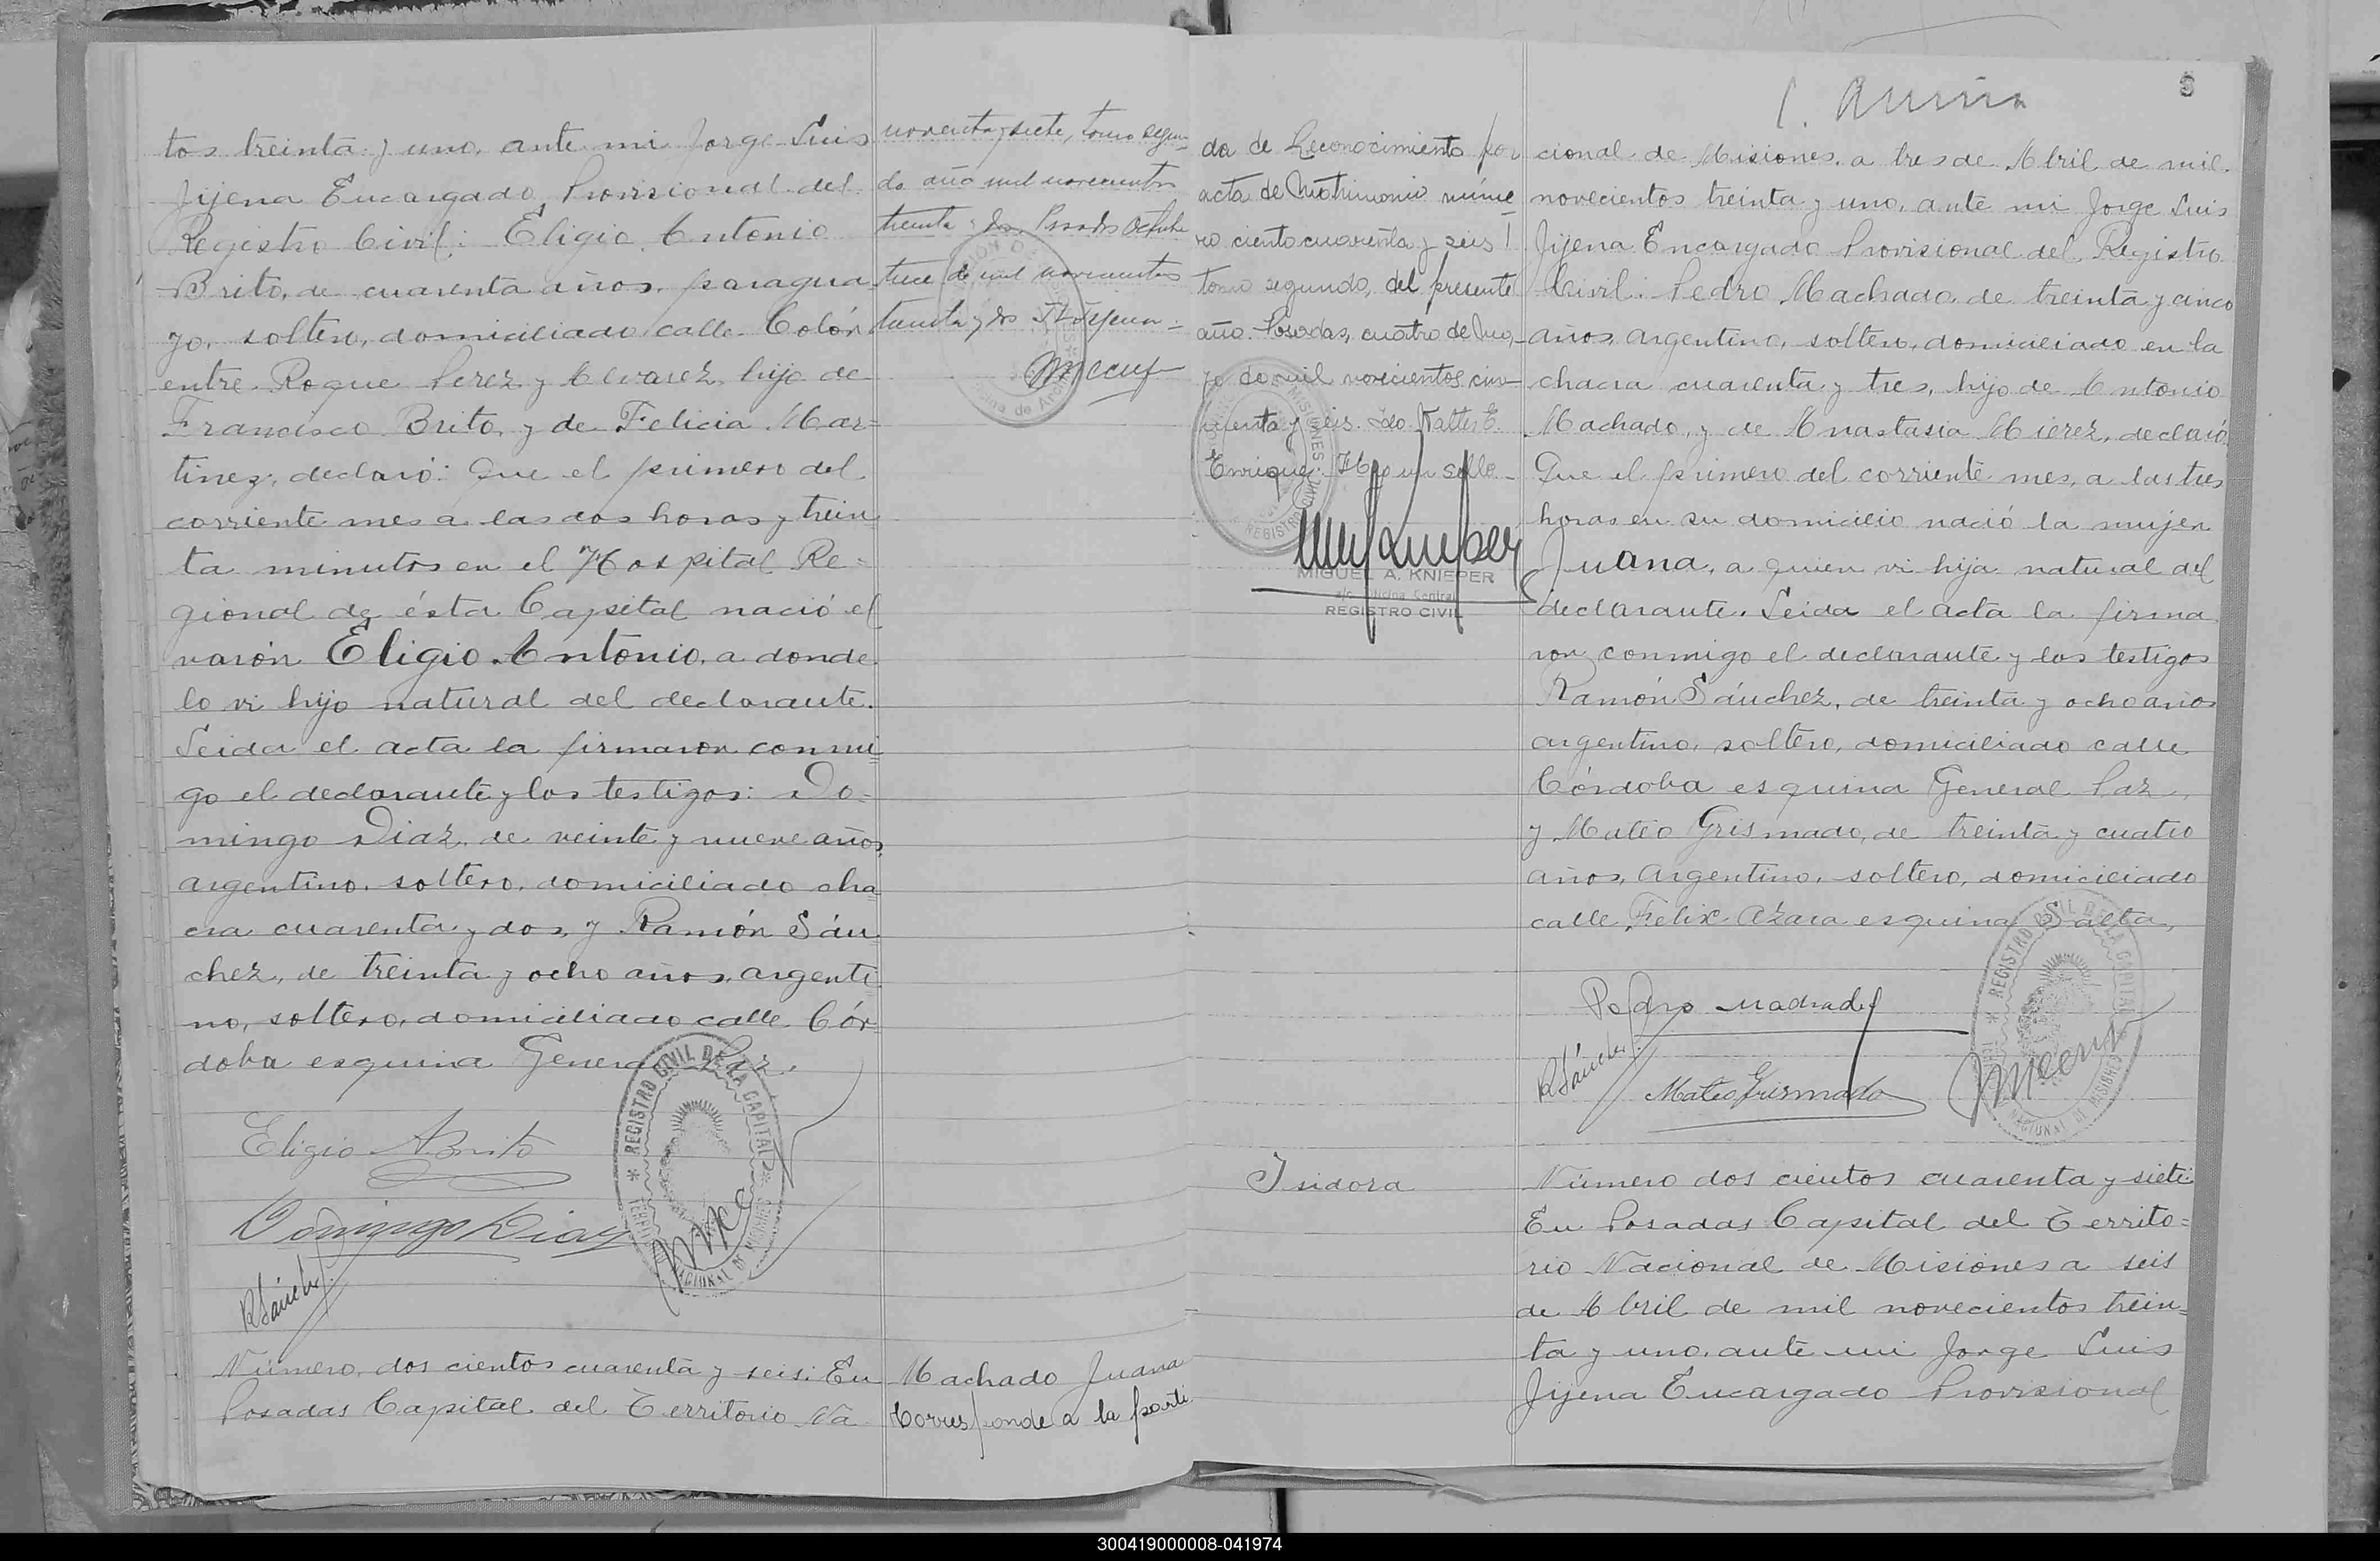 tos treinta y uno, ante mi Jorge Luis
Jijena Encargado Provisional del
Registro Civil: Eligio Antonio
Brito, de cuarenta años, paragua
yo, soltero, domiciliado calle Colón
entre Roque Perez y Alvarez, hijo de
Francisco Brito, y de Felicia Mar=
tinez, declaró: Que el primero del
corriente mes a las dos horas y trein
ta minutos en el Hospital Re=
gional de ésta Capital nació el
varón Eligio Antonio, a donde
lo vi hijo natural del declarante.
Leida el acta la firmaron conmi=
go el declarante y los testigos: Do=
mingo Diaz, de veinte y nueve años,
argentino, soltero, domiciliado cha
cra cuarenta y dos, y Ramón Sán
chez, de treinta y ocho años, argenti
no, soltero, domiciliado calle Cór=
doba esquina General Paz.
Eligio A Brito
Domingo Diaz
R Sánchez
REGISTRO CIVIL DE LA CAPITAL
NACIONAL DE MISIONES
Número, dos cientos cuarenta y seis: En
Posadas Capital del Territorio Na
noventa y siete, tomo segun-
do año mil novecientos
treinta y dos Posadas Octubre
trece de mil novecientos
treinta y dos
Machado Juana
Corresponde a la parti
da de Reconocimiento por
acta de Matrimonio núme-
ro ciento cuarenta y seis
tomo segundo, del presente
año. Posadas, cuatro de Ma-
yo de mil novecientos cin-
cuenta y seis. Fdo Walter E.
Enrique. Hay un sello.-
MIGUEL A. KNIEPER
a/c. Oficina Central
REGISTRO CIVIL
cional de Misiones, a tres de Abril de mil
novecientos treinta y uno, ante mi Jorge Luis
Jijena Encargado Provisional del Registro
Civil: Pedro Machado, de treinta y cinco
años, argentino, soltero, domiciliado en la
chacra cuarenta y tres, hijo de Antonio
Machado, y de Anastasia Mierez, declaró,
Que el primero del corriente mes, a las tres
horas en su domicilio nació la mujer
Juana, a quien vi hija natural del
declarante. Leida el acta la firma
ron conmigo el declarante y los testigos
Ramón Sánchez, de treinta y ocho años
argentino, soltero, domiciliado calle
Córdoba esquina General Paz,
y Mateo Grismado, de treinta y cuatro
años, argentino, soltero, domiciliado
calle Felix Azara esquina Salta,
Pedro Machado
R Sánchez
Mateo Grismado
REGISTRO CIVIL DE LA CAPITAL
NACIONAL DE MISIONES
Isidora
Número dos cientos cuarenta y siete:
En Posadas Capital del Territo=
rio Nacional de Misiones a seis
de Abril de mil novecientos trein=
ta y uno, ante mi Jorge Luis
Jijena Encargado Provisional
300419000008-041974